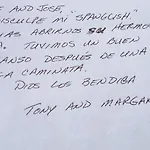 E AND JOSE,
DISCULPE MI "SPANGLISH."
ABRIRNOS SU HERMO
TUVIMOS UN BUEN
ANSO DESPUÉS DE UNA
CAMINATA.
DIOS LOS BENDIGA
TONY AND MARGAR